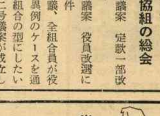 協組の総会
議案　定款一部改
議案　役員改選に
議、全組合員が役
異例のケースを通
組合の型にしたい
二号議案が成立し